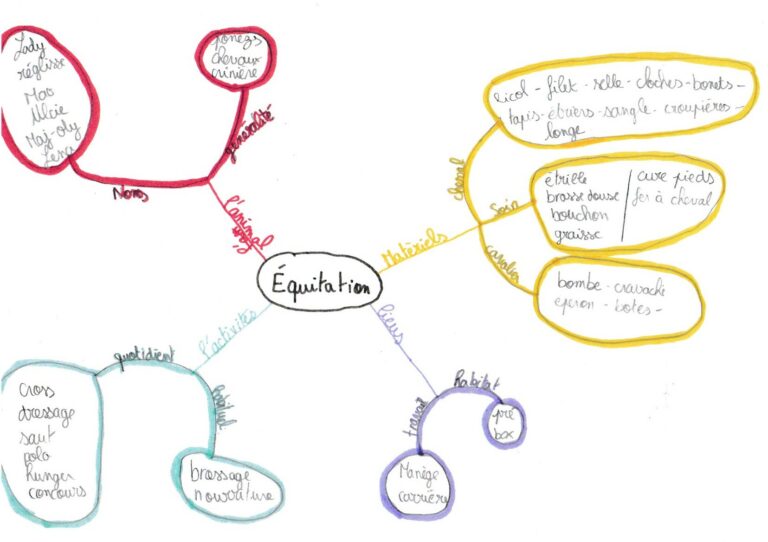 Équitation
l'animal
Noms
Lady
réglisse
Mac
Alcie
Maj-oly
généralité
poneys
chevaux
crinière
Matériels
cheval
licol - filet - selle - cloches - bonets -
tapis - étriers - sangle - croupières -
longe
Soin
étrille
brosse douse
bouchon
graisse
cure pieds
fer à cheval
cavalier
bombe - cravache
eperon - botes -
lieus
travail
Manège
carrière
habitat
pré
box
l'activités
quotidient
cross
dressage
saut
polo
hunger
concours
habituel
brossage
nourrature